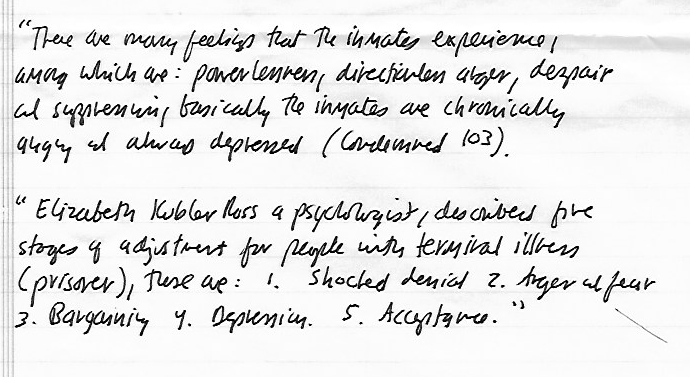 "There are many feelings that the inmates experience,
among which are: powerlessness, directionless anger, despair
and suppression, basically the inmates are chronically
angry and always depressed (Condemned 103).
"Elizabeth Kubler Ross a psychologist, describes five
stages of adjustment for people with terminal illness
(prisoner), these are: 1. Shocked denial 2. Anger and fear
3. Bargaining 4. Depression. 5. Acceptance."